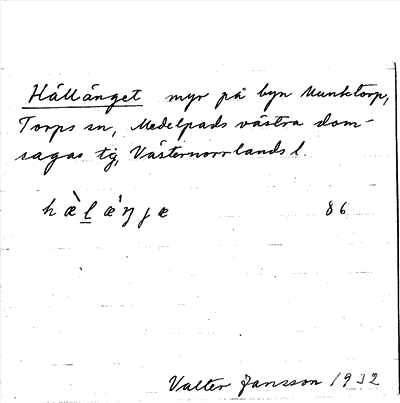 Hällänget myr på byn Munktorp,
Torps sn, Medelpads västra dom-
sagas tg, Västernorrlands l.
hæ̀l̲ǽŋjæ 86
Valter Jansson 1932